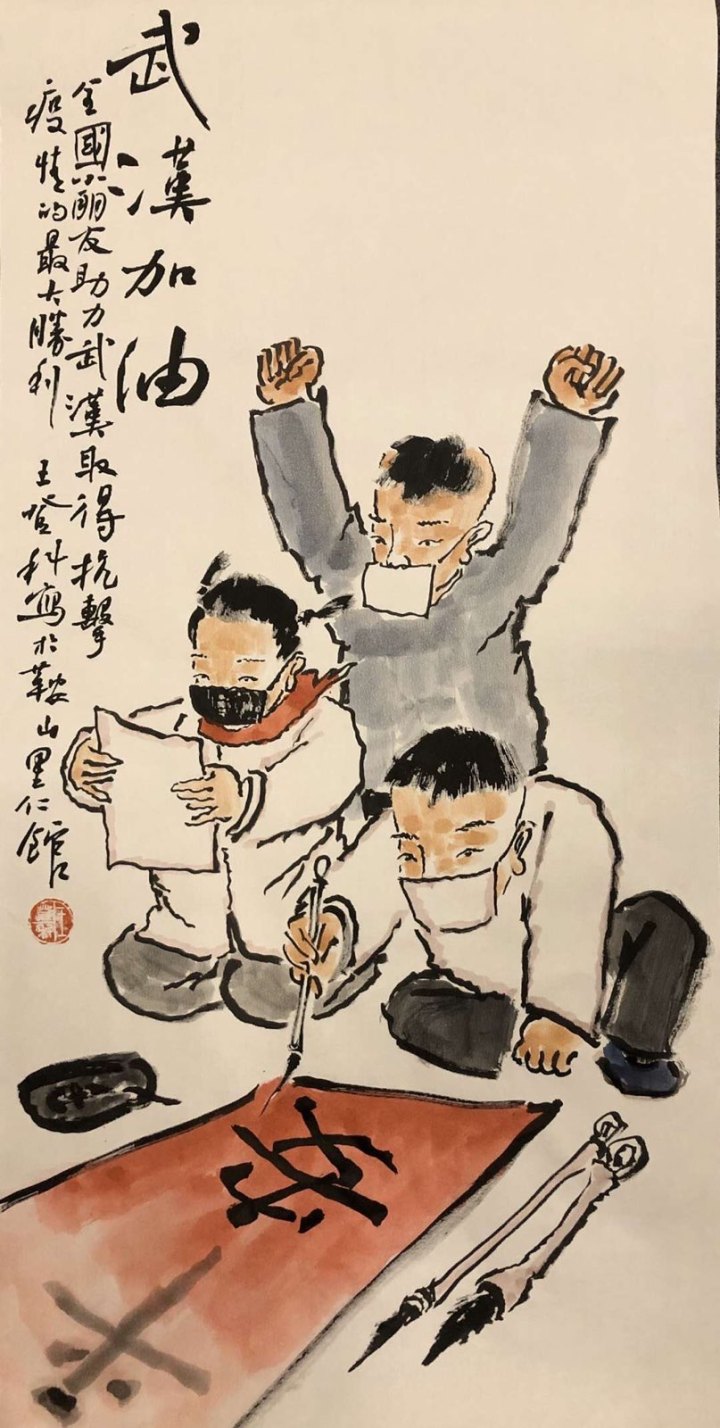 武漢加油
全國小朋友助力武漢取得抗擊
疫情的最大勝利 王登科寫於鞍山里仁館